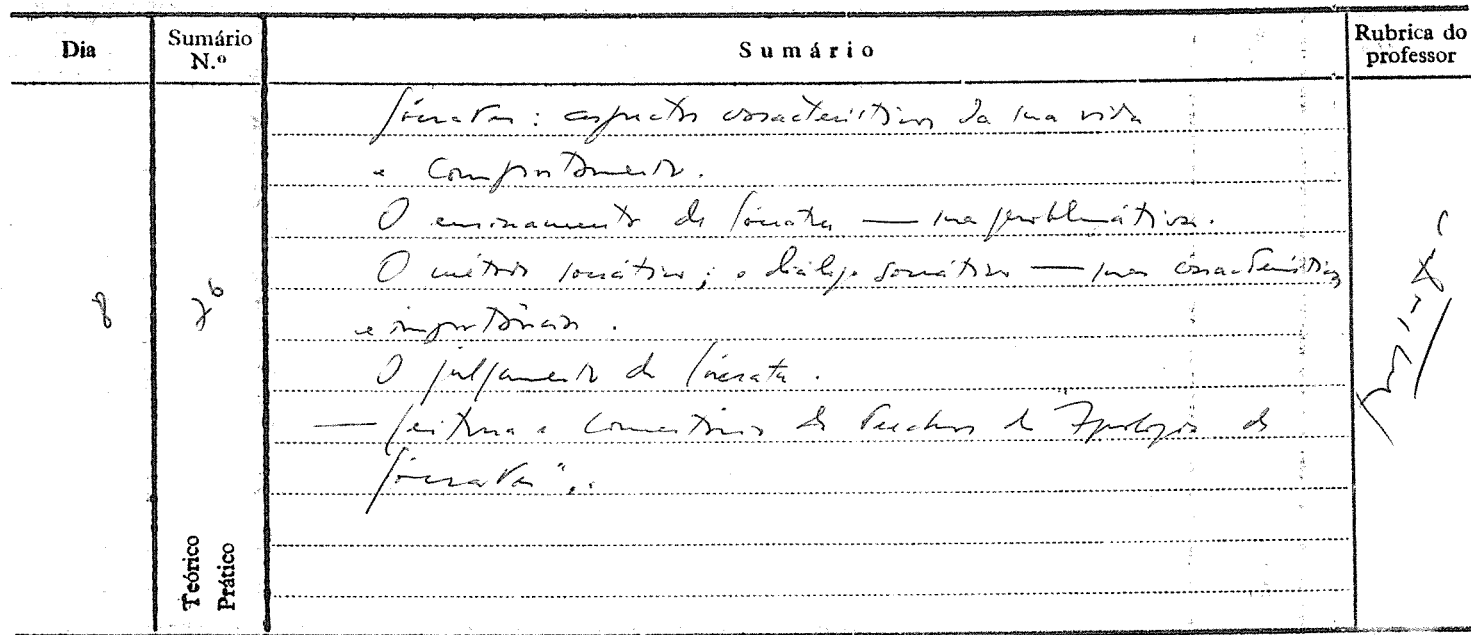 Dia
Sumário N.º
Sumário
Rubrica do professor
Sócrates: aspectos característicos da sua vida
e comportamento.
O ensinamento de Sócrates — sua problemática.
O método socrático; o diálogo socrático — suas características
e importância.
O julgamento de Sócrates.
— Leitura e comentários de trechos da "Apologia de
Sócrates".
8
26
Teórico
Prático